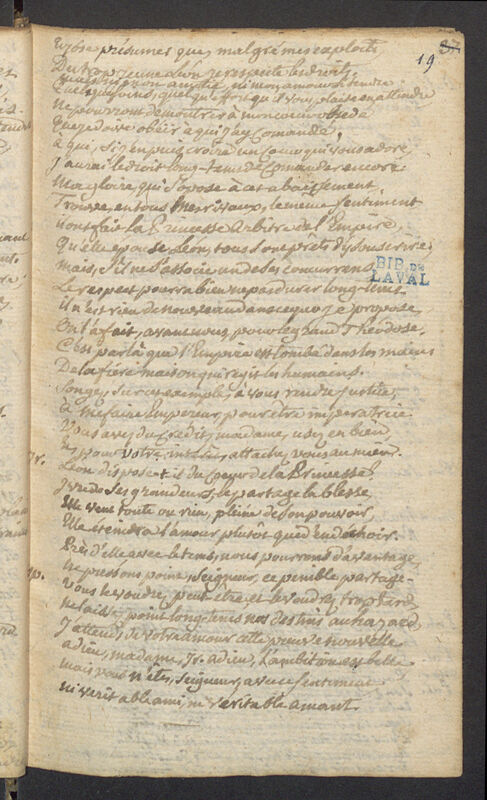 37
19
Et j'ose présumer que, malgré mes exploits,
Du trop jeune Léon je respecte les droits,
ni mon amour tendre
quelque effort qu'il vous plaise en attendre
ne pourront demeurer
que je doive obéir à qui j'ay comandé,
à qui, si j'en puis croire un coeur qui vous adore,
J'aurai le droit long-tems de comander encore
Ma gloire, qui s'opose à cet abaissement,
Trouve, en tous mes rivaux, le meme sentiment
ils ont fait la Princesse arbitre de l'Empire,
Qu'elle epouse Léon, tous sont prêts d'y souscrire
mais, s'il ne s'associe un de ses concurrens,
Le respect pourra bien ne pas durer long-tems
il n'est rien de nouveau dans ce que je propose,
On l'a fait, avant nous, pour le grand Théodose,
C'est par là que l'Empire est tombé dans les mains
De la fiere maison qui régit les humains.
Songez, sur ces exemples, à vous rendre justice,
à me faire Empereur, pour etre imperatrice
Vous avez du crédit, madame, usez en bien
Et, pour votre attachez vous au mien.
Ir. Léon dispose-t-il du coeur de la Princesse?
Jeu de ses grandeurs, le partage la blesse,
Elle veut tout ou rien, pleine de son pouvoir,
Elle éteindra l'amour plutôt que d'en déchoir.
Près d'elle avec le tems, nous pourrons d'avantage,
ne pressons point, Seigneur, ce penible partage.
Vous le voudrez, peut-etre, et le voudrez trop tard,
ne laissez point long-tems nos destins au hazard
J'attends, de votre amour cette preuve nouvelle
adieu, madame, Ir. adieu, l'ambition est belle
mais vous n'etes, Seigneur, avec ce sentiment
ni veritable ami, ni veritable amant
BIB. DE
LAVAL